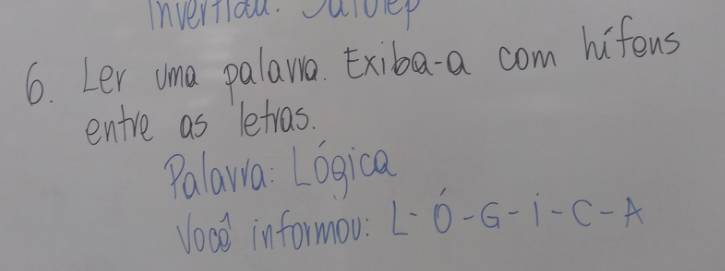 6. Ler uma palavra. Exiba-a com hífens
entre as letras.
Palavra: Lógica
Você informou: L-Ó-G-i-C-A